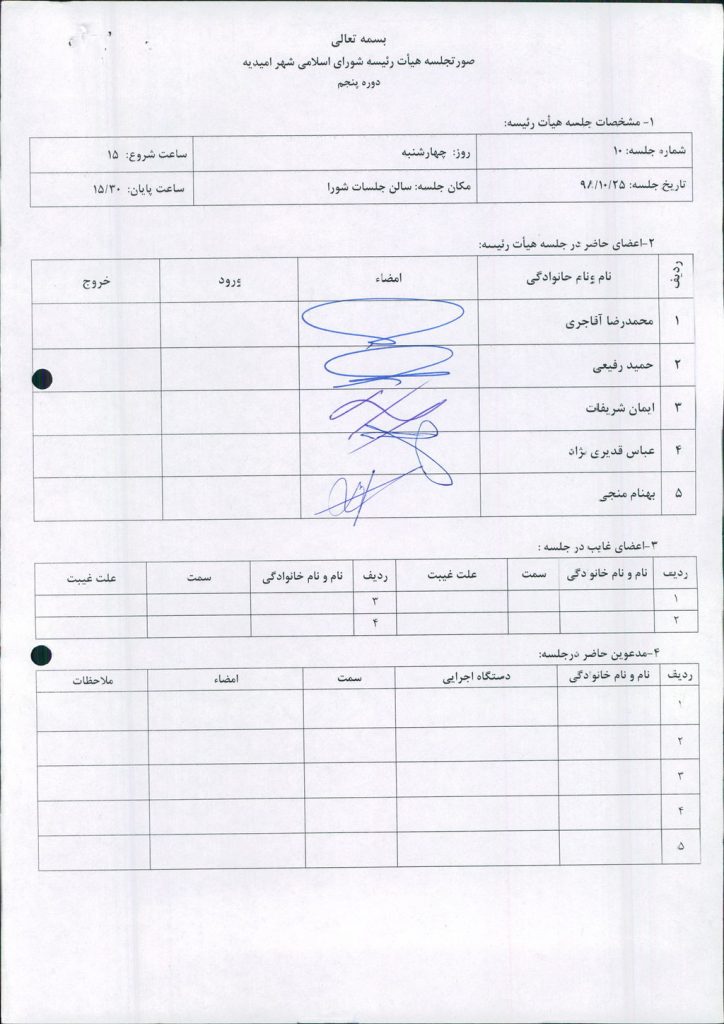 بسمه تعالی
صورتجلسه هیأت رئیسه شورای اسلامی شهر امیدیه
دوره پنجم
۱- مشخصات جلسه هیأت رئیسه:
شماره جلسه: ۱۰ روز: چهارشنبه ساعت شروع: ۱۵
تاریخ جلسه: ۹۸/۱۰/۲۵ مکان جلسه: سالن جلسات شورا ساعت پایان: ۱۵/۳۰
۲-اعضای حاضر در جلسه هیأت رئیسه:
ردیف نام ونام خانوادگی امضاء ورود خروج
۱ محمدرضا آقاجری
۲ حمید رفیعی
۳ ایمان شریفات
۴ عباس قدیری نژاد
۵ بهنام منجی
۳-اعضای غایب در جلسه :
ردیف نام و نام خانوادگی سمت علت غیبت ردیف نام و نام خانوادگی سمت علت غیبت
۱ ۳
۲ ۴
۴-مدعوین حاضر درجلسه:
ردیف نام و نام خانوادگی دستگاه اجرایی سمت امضاء ملاحظات
۱
۲
۳
۴
۵